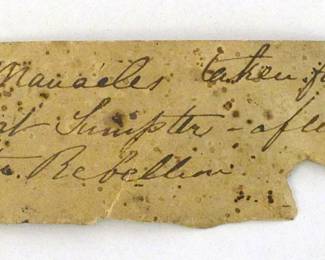 Manacles taken f
rt Sumpter - afte
Rebellion